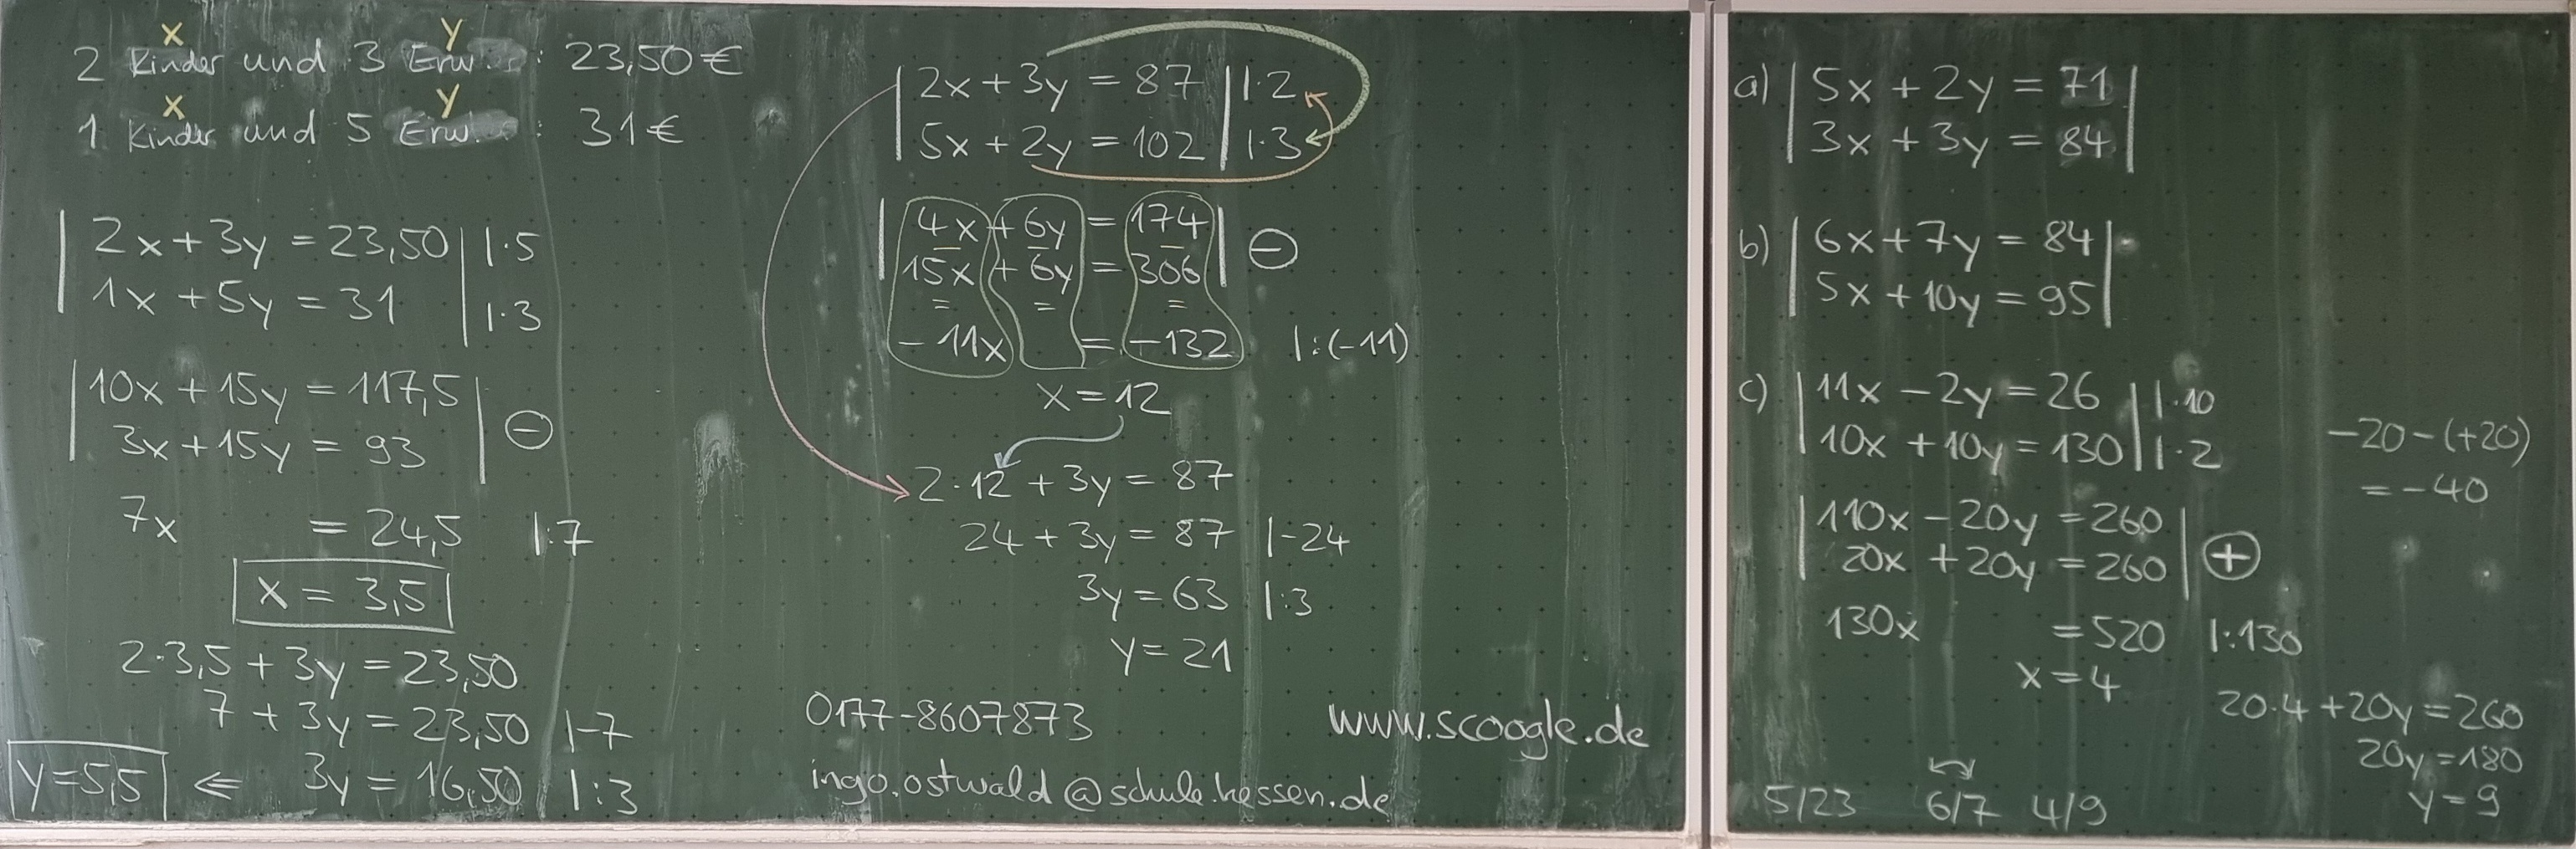 x y
2 Kinder und 3 Erw. : 23,50 €
x y
1 Kinder und 5 Erw. : 31 €
| 2x + 3y = 23,50 | |·5
| 1x + 5y = 31 | |·3
| 10x + 15y = 117,5 |
| 3x + 15y = 93 | ⊖
7x = 24,5 |:7
x = 3,5
2·3,5 + 3y = 23,50
7 + 3y = 23,50 |-7
y = 5,5 ⇐ 3y = 16,50 |:3
| 2x + 3y = 87 | |·2
| 5x + 2y = 102 | |·3
| 4x + 6y = 174 |
| 15x + 6y = 306 | ⊖
= = =
-11x = -132 |:(-11)
x = 12
2·12 + 3y = 87
24 + 3y = 87 |-24
3y = 63 |:3
y = 21
0177-8607873
www.scoogle.de
ingo.ostwald@schule.hessen.de
a) | 5x + 2y = 71 |
| 3x + 3y = 84 |
b) | 6x + 7y = 84 |
| 5x + 10y = 95 |
c) | 11x - 2y = 26 | |·10
| 10x + 10y = 130 | |·2
| 110x - 20y = 260 |
| 20x + 20y = 260 | ⊕
130x = 520 |:130
x = 4
-20-(+20)
= -40
20·4 + 20y = 260
20y = 180
y = 9
5/23 6/7 4/9